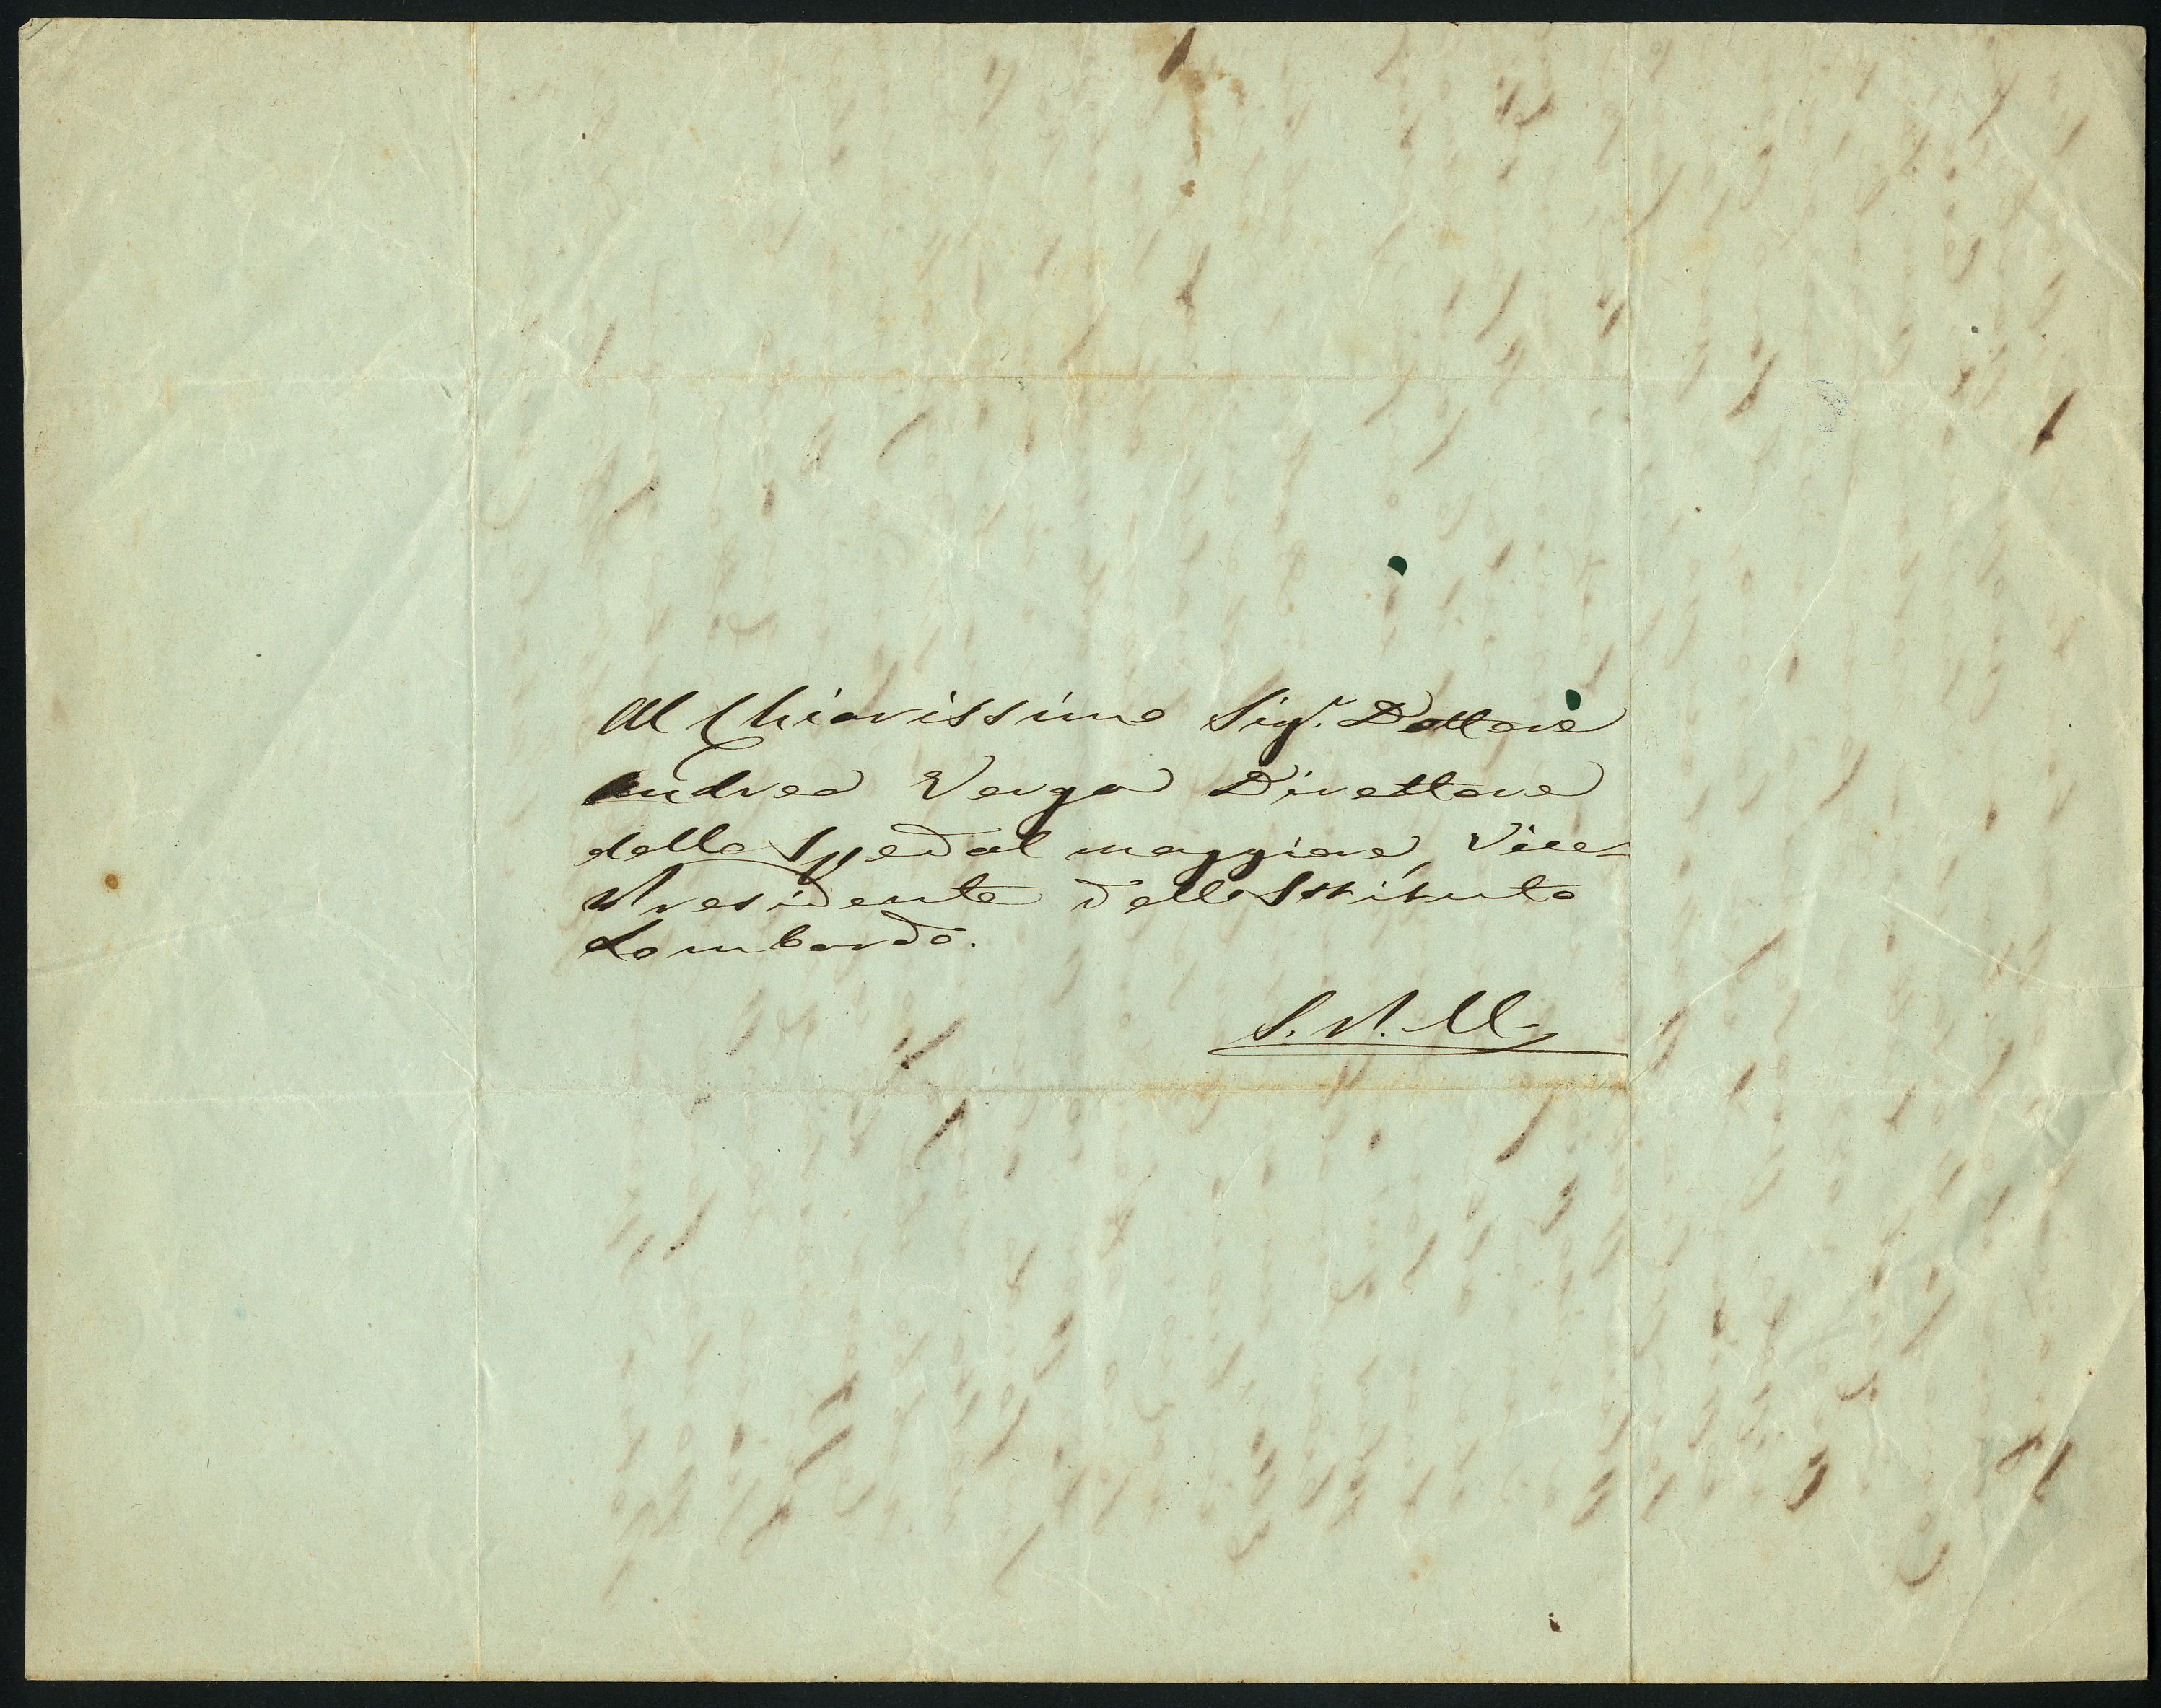 Al Chiarissimo Sigr. Dottore
Andrea Verga Direttore
dello Spedal maggiore, Vice-
Presidente dello Istituto
Lombardo.
S. P. M.